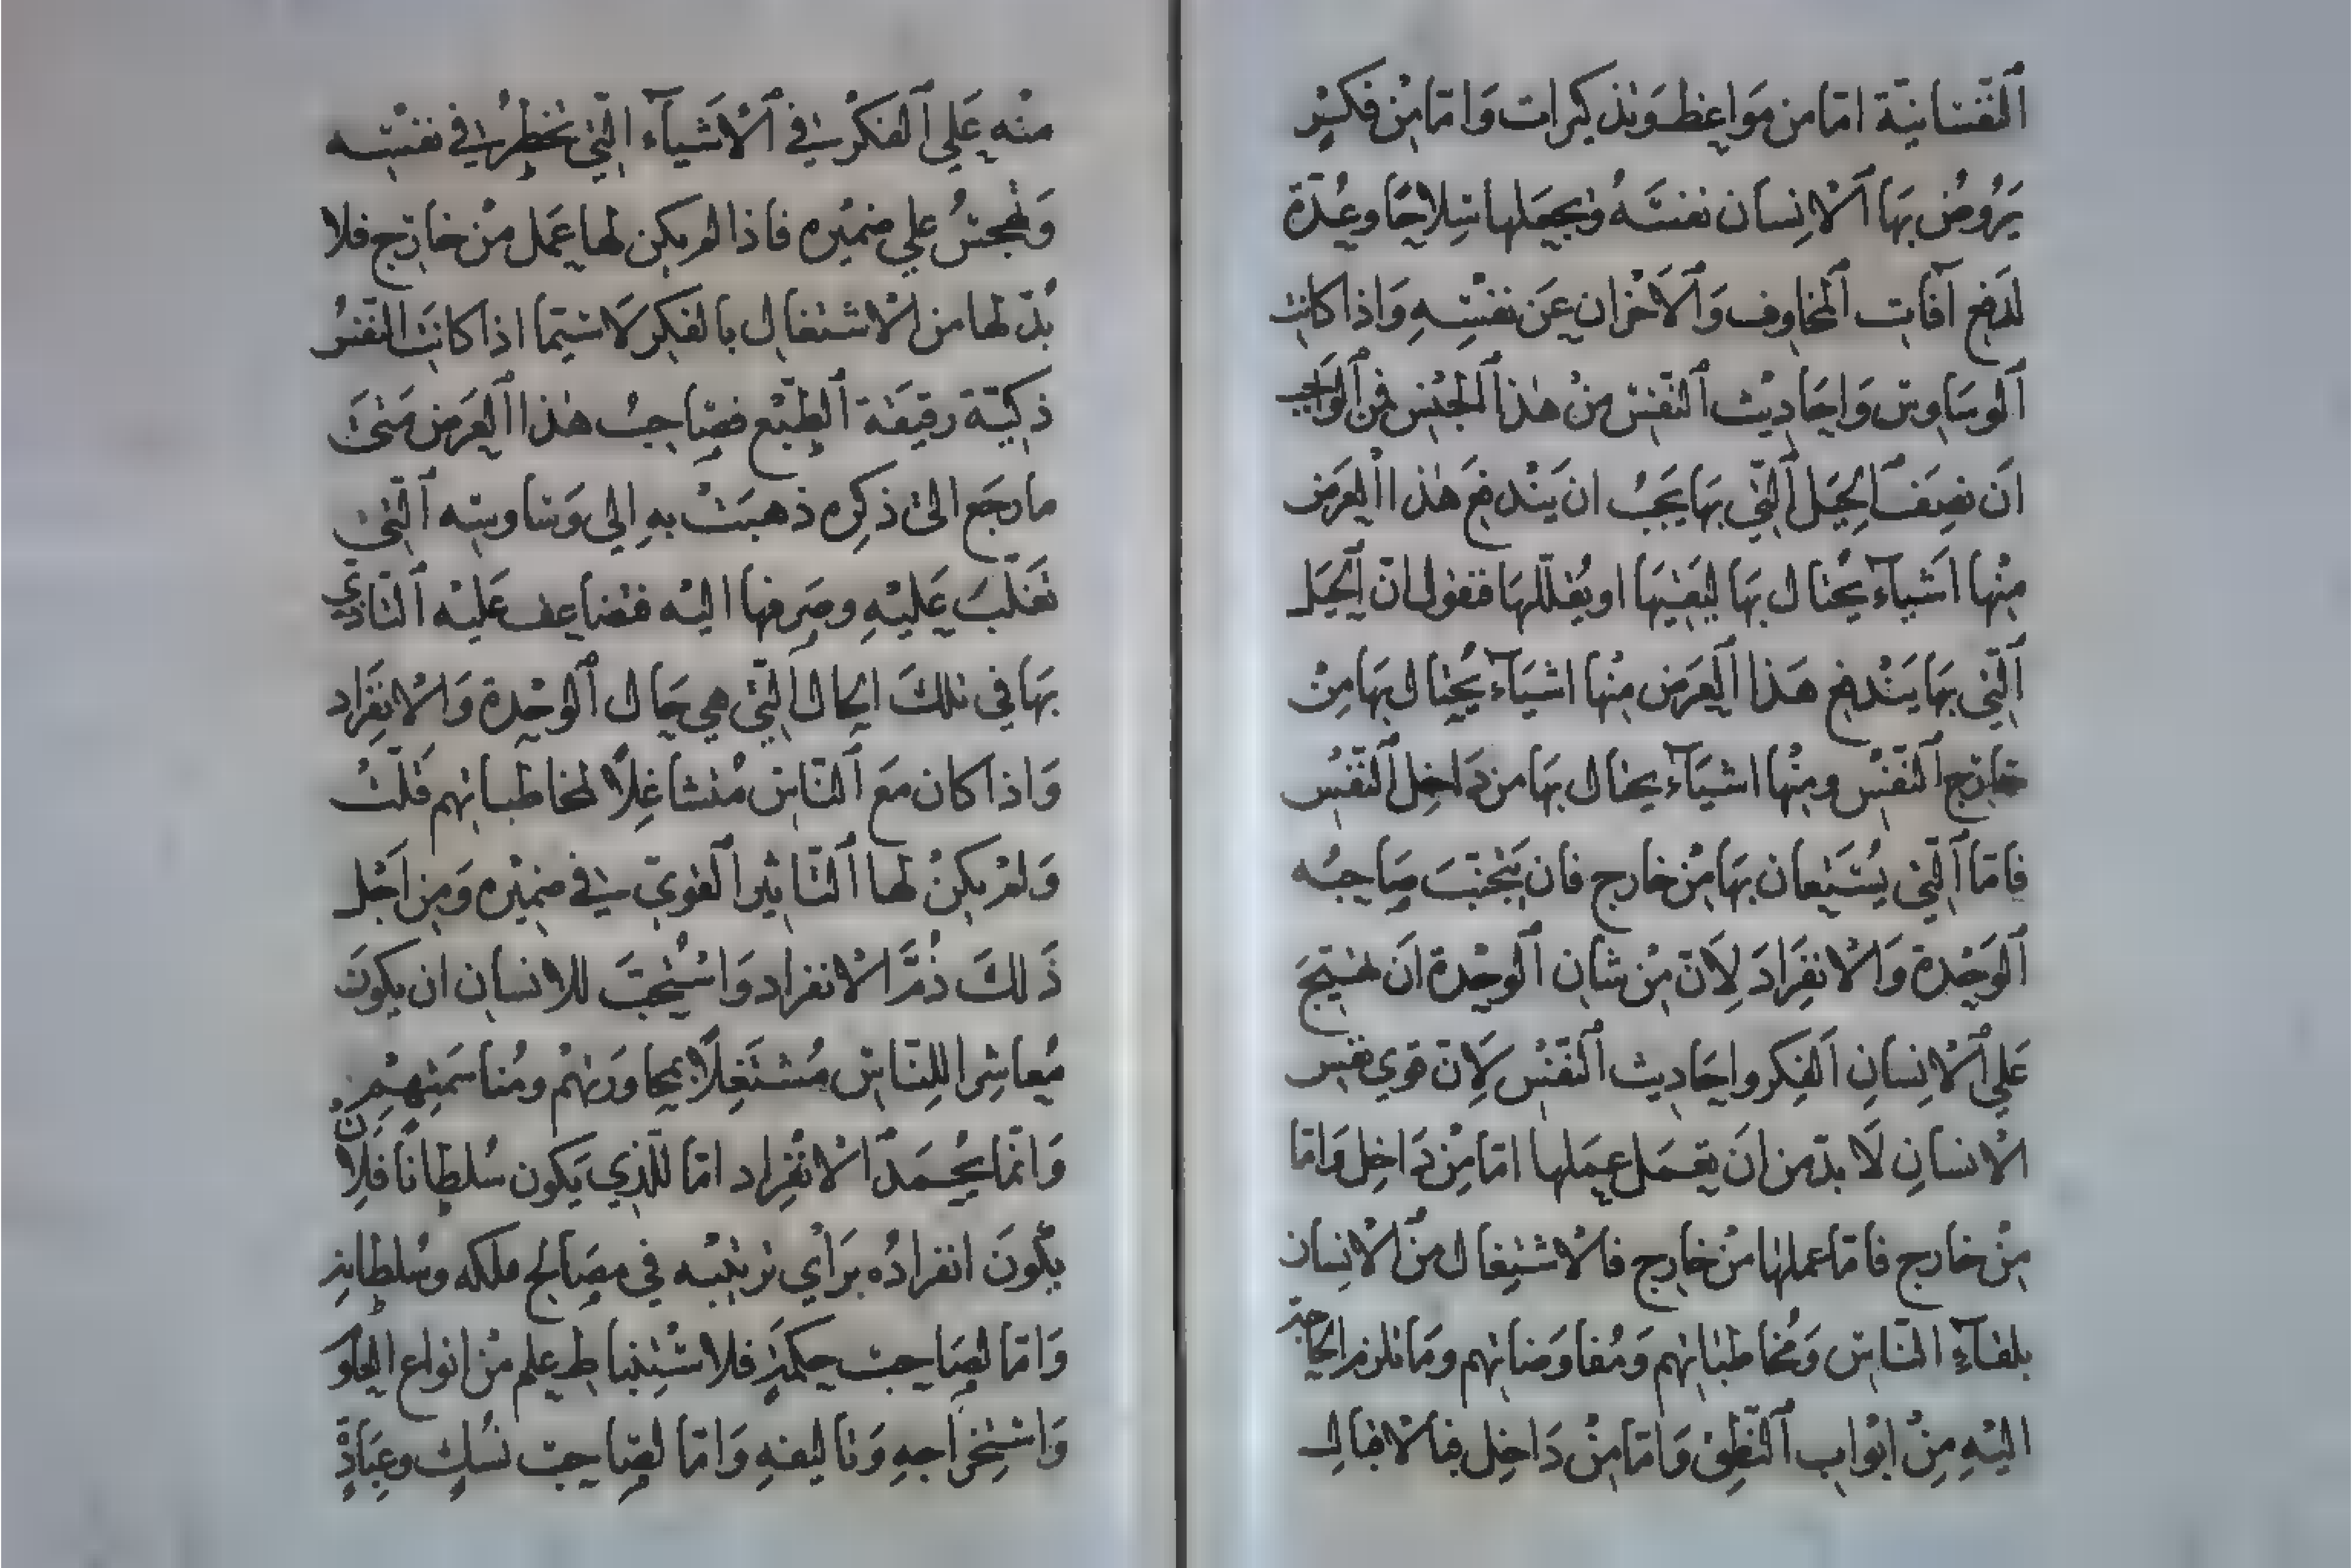 النَّفسانيّة امّا من مَواعِظ وَتذكيرات وَامّا مِنْ فكَرٍ
يَرُوضُ بهَا الْانِسان نفسَهُ وَيجعَلها سِلاحًا وعُدّة
لدَفع آفات المخاوِف وَالْاَحْزان عَن نفسِهِ وَاذا كانت
الوسَاوس وَاحَاديث النّفس مِنْ هٰذا الجِنس فمن الوَاجب
اَن نصِفَ الحِيَل الّتي بهَا يَجبُ ان يَندفعَ هٰذا العَرَض
مِنْها اشيآء يحتال بهَا ليَنفيَهَا او يُقلّلهَا فنقول انّ الحِيَل
الّتي بهَا يَنْدفع هَذا العَرَض مِنْها اشيَآء يُحتال بهَا مِنْ
خارج النّفس ومِنْها اشيَآء يحتال بهَا من دَاخِل النَّفس
فامّا الّتي يُسْتَعان بهَا مِنْ خارج فان يَتجنّبَ صَاحبُه
الوَحْدة وَالْانفِرَادَ لِاَنّ مِنْ شَان الوحْدة اَن تهيّجَ
عَلى الْانِسانِ الفِكر واحَاديث النّفْس لِاَنّ قوى نفس
الْانسانِ لَا بدّ من اَن تعمَل عمَلها امّا مِنْ دَاخِل وَامّا
مِنْ خارج فامّا عملهَا مِنْ خارج فالْاشتِغال مِنَ الْانِسان
بلقآءِ النّاس وَمُخاطباتهم وَمُفاوَضاتهم ومَا تلزم الحَاجَة
اليْهِ مِنْ ابْوَاب النّطِق وَامّا مِنْ دَاخِل فبالْاقبال
منْه عَلى الفكر في الْاَشيآء الّتي تخطِرُ في نفسِه
وَتهجسُ على ضميْره فاذا لم يكن لها عَمل مِنْ خارج فلا
بُدّ لها من الْاشتغال بالفكر لَا سيّما اذا كانَت النّفس
ذكيّة رقيقة الطّبْع فصَاحبُ هٰذا العَرَض مَتىَ
ما رجَع الىٰ ذكره ذهبَتْ بهِ الي وَساوسِه الّتي
تغَلّبَ عَليْهِ وصَرفها اليْه فتضاعف عَليْه التّاذّي
بهَا فى تلكَ الحال الّتي هي حَال الوحْدة وَالْانفِرَاد
وَاذا كان مَعَ النّاسِ مُتشاغِلًا بمخاطباتهم قَلّتْ
وَلمْ يكنْ لها التّاثير القويّ في ضميْره وَمن اَجْل
ذَلكَ ذُمَّ الْانفراد وَاسْتُحِبَّ للانسان ان يكونَ
مُعاشِرا للِنّاسِ مُشتَغِلًا بمحَاورَتهُم ومُناسَمتِهِمْ
وَانّما يُحمَدُ الْانْفِراد امّا للّذِي يَكون سُلطانًا فلِاَنْ
يكُونَ انفرادُه برَأي يرتئيْه في مصَالح ملكه وسُلطانه
وَامّا لصَاحب حكمَةٍ فلاسْتِنباط علم مِنْ انواع العلو
وَاسْتِخرَاجهِ وَتاليفهِ وَامّا لصَاحب نُسُكٍ وعِبَادةٍ